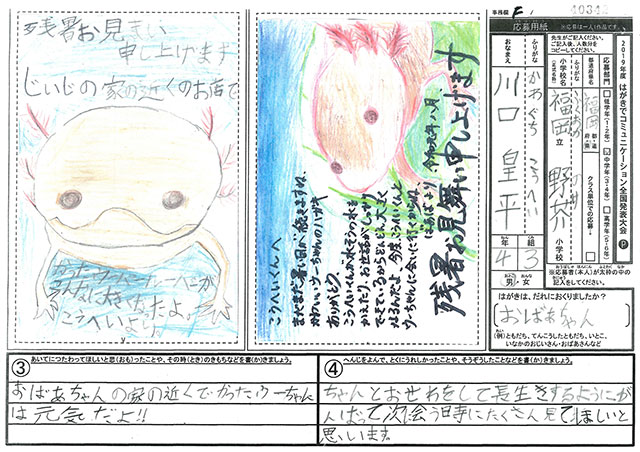 残暑お見まい
申し上げます
じいじの家の近くのお店で
かったウーパールーパーが
こんなに大きくなったよ。
こうへいより
残暑お見舞い申し上げます
令和元年八月
おばあばより
こうへいくんへ
まだまだ暑い日が続きますね。
かわいいウーちゃんのハガキ
ありがとう。
こうへいくんが水そうの水を
かえたり、お世話をしっかり
できているからどんどん大きく
なるんだよ。今度、こうへいくんと
ウーちゃんに会いに行くからね。
事務欄
40342
応募用紙
※応募は一人1作品です。
先生がご記入ください。
ご記入後、人数分を
コピーしてください。
2019年度 はがきでコミュニケーション全国発表大会
応募部門
低学年(1・2年)
中学年(3・4年)
高学年(5・6年)
クラス単位での応募
都道府県名
福岡
都・道
府・県
ふりがな
小学校名
(正式名称)
福岡
立
野芥
小学校
ふりがな
おなまえ
かわぐち こうへい
川口 皇平
4年
3組
男・女
※応募者(本人)が太枠の中の
記入をしてください。
はがきは、だれにおくりましたか?
おばあちゃん
(例)ともだち、てんこうしたともだち、いとこ、
いなかのおじいさん・おばあさんなど
③
あいてにつたわってほしいと思(おも)ったことや、その時(とき)のきもちなどを書(か)きましょう。
おばあちゃんの家の近くでかったウーちゃん
は元気だよ!!
④
へんじをよんで、とくにうれしかったことや、そうぞうしたことなどを書(か)きましょう。
ちゃんとおせわをして長生きするようにが
んばって次会う日時にたくさん見てほしいと
思います。